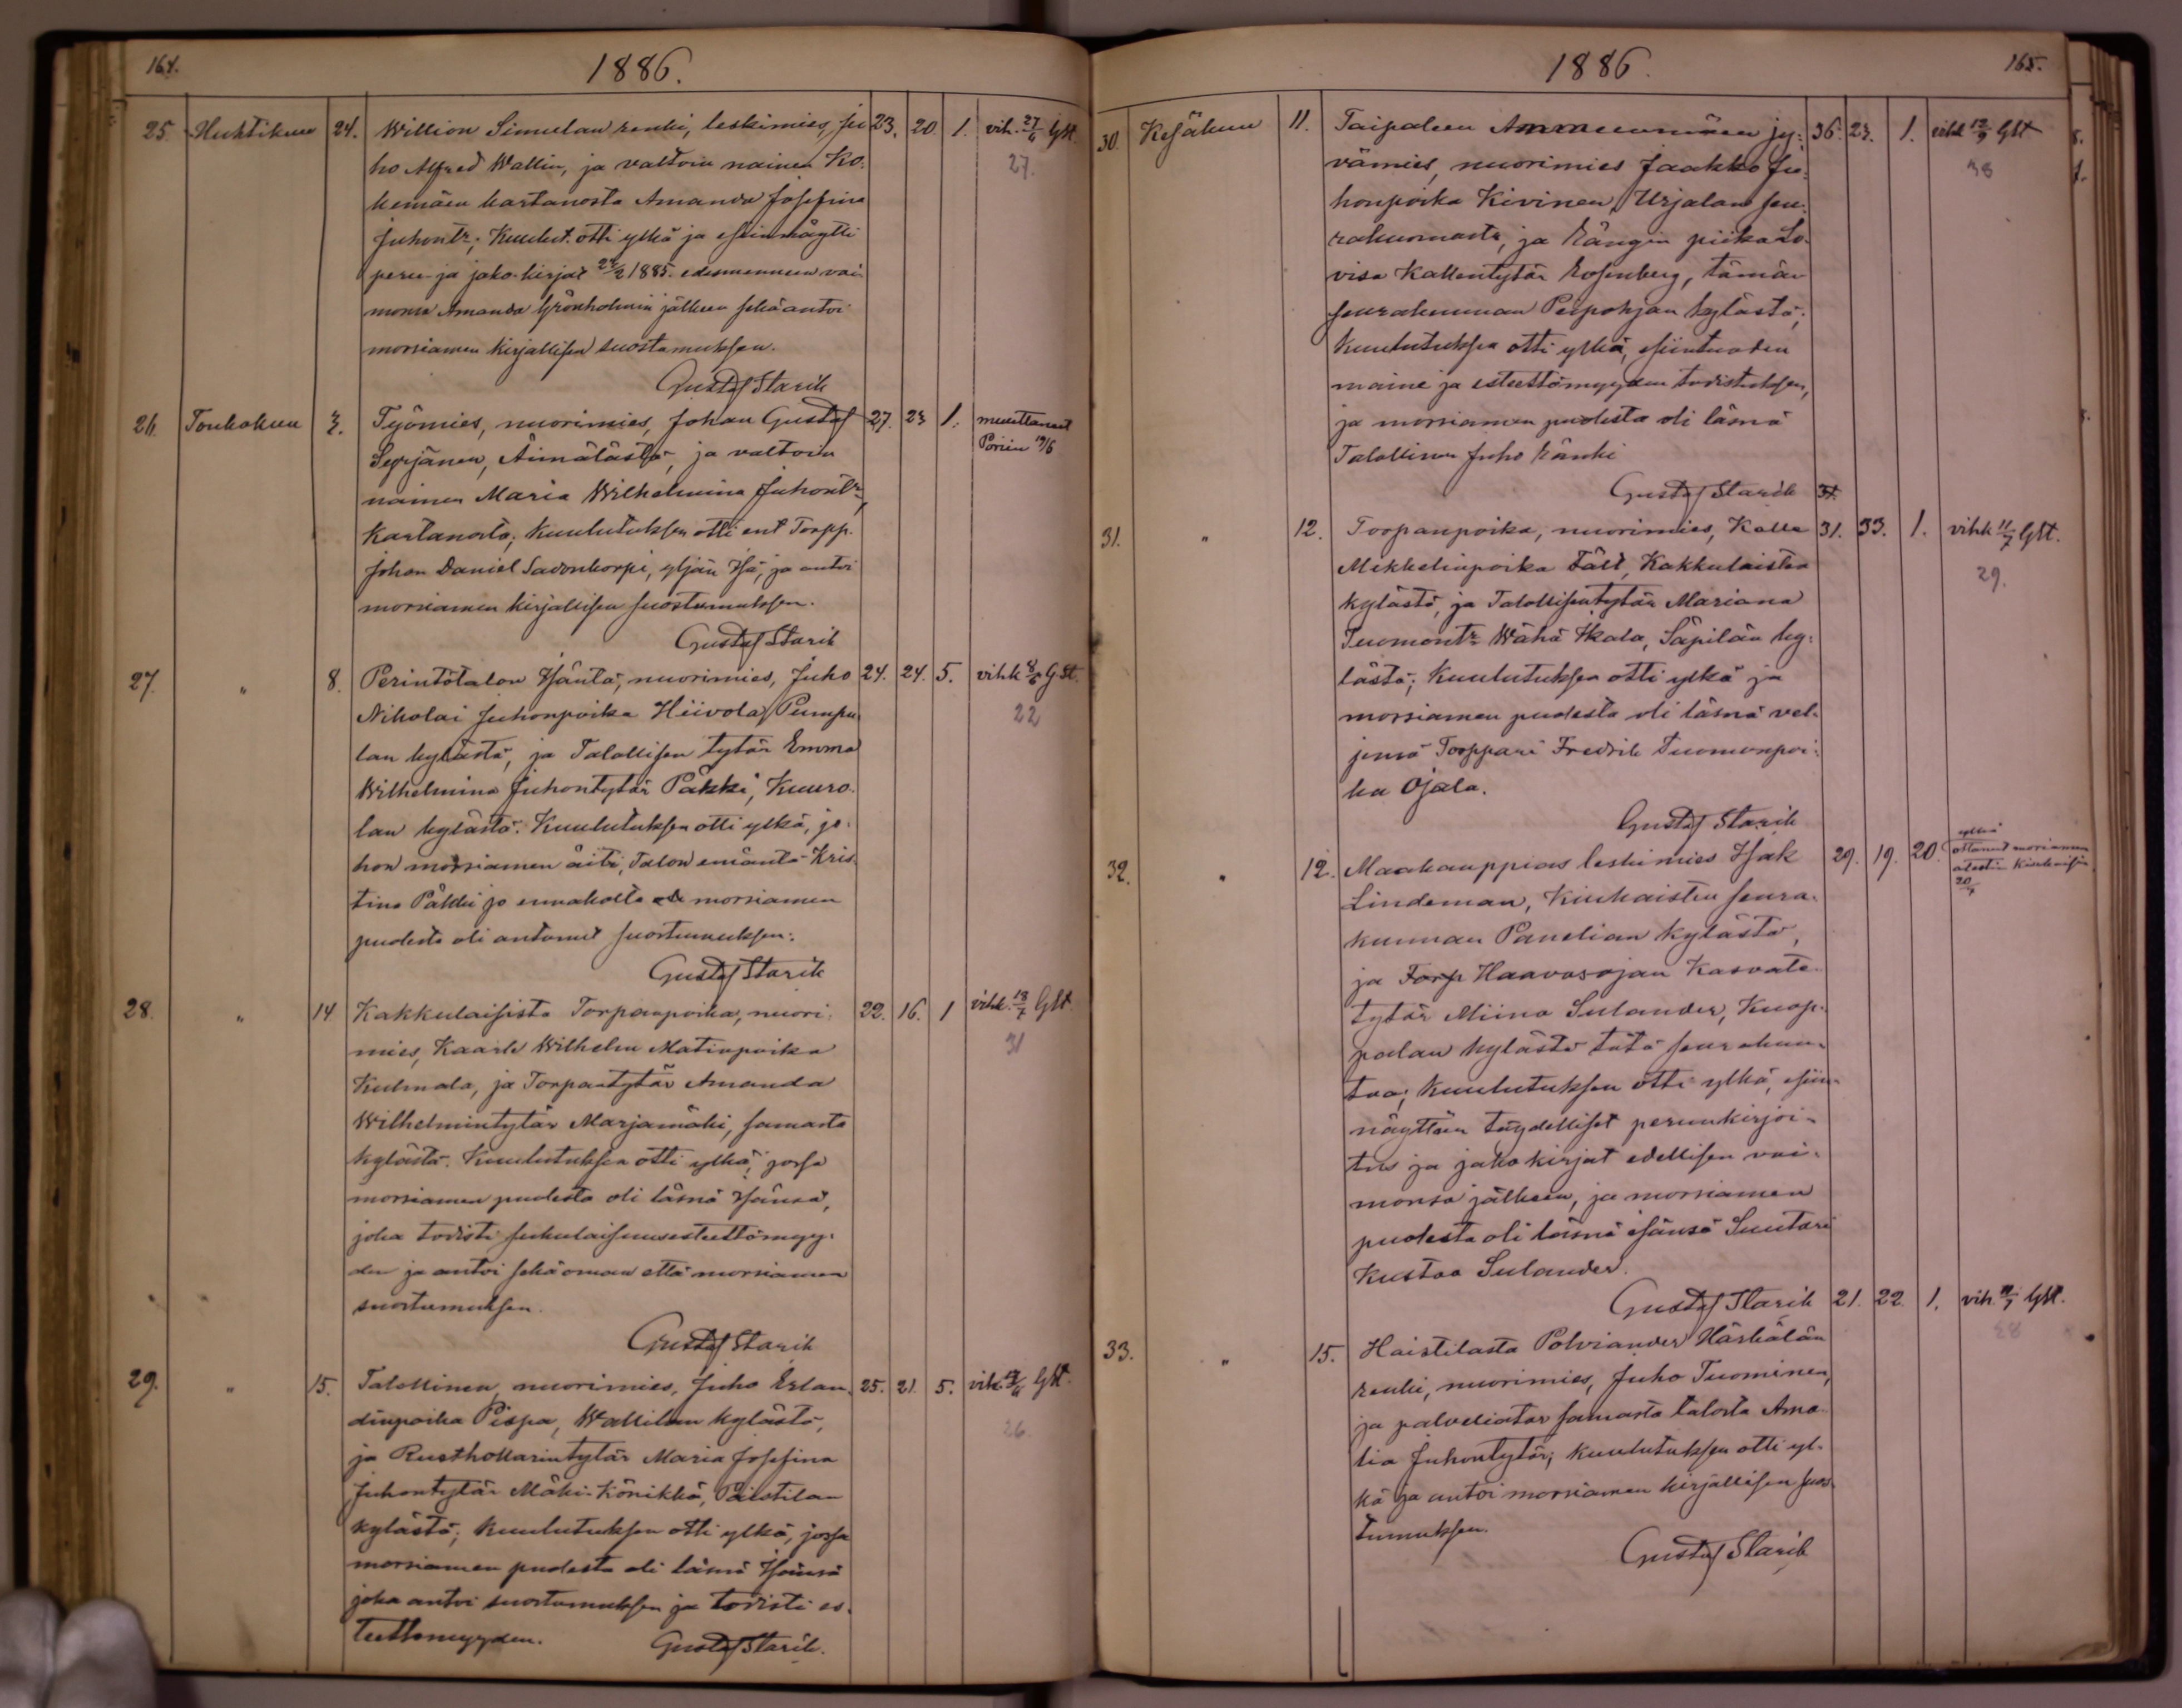 164.
1886.
25. Huhtikuu 24. Willion Simulan renki, leskimies, Ju 23. 20. 1. vih. 27/6 GSt.
ho Alfred Wallin, ja valtoin nainen Ko- 27.
kemäen kartanosta Amanda Josefina
Juhontr; Kuulut. otti ylkä ja esiinnäytti
peru- ja jako-kirjat 1885 edesmenneen vai-
monsa Amanda Grönholmin jälkeen sekä antoi
morsiamen kirjallisen suostumuksen.
Gustaf Starik
26. Toukokuu 3. Työmies, nuorimies, Johan Gustaf 27. 23 1. muuttaneet
Syrjänen, Äimälästä, ja valtoin Poriin 19/6
nainen Maria Wilhelmina Juhontr,
Kartanosta; Kuulutuksen otti ent Torpp.
Johan Daniel Savonkorpi, yljän Isä, ja antoi
morsiamen kirjallisen suostumuksen.
Gustaf Starik
27. " 8. Perintötalon Isäntä, nuorimies, Juho 24. 24. 5. vihk 8/6 G.St.
Nikolai Juhonpoika Hiivola, Pumpu- 22
lan kylästä, ja Talollisen tytär Emma
Wilhelmina Juhontytär Päkki, Kuuro-
lan kylästä. Kuulutuksen otti ylkä, jo-
hon morsiamen äiti, Talon emäntä Kris-
tina Päkki jo ennakolta morsiamen
puolesta oli antanut suostumuksen.
Gustaf Starik
28. " 14. Kakkulaisista Torpanpoika, nuori- 22. 16. 1 vihk. 18/7 GSt.
mies, Kaarle Wilhelm Matinpoika 31
Kulmala, ja Torpantytär Amanda
Wilhelmintytär Marjamäki, samasta
kylästä. Kuulutuksen otti ylkä, jossa
morsiamen puolesta oli läsnä Isänsä,
joka todisti sukulaisuusesteettömyy-
den ja antoi sekä oman että morsiamen
suostumuksen.
Gustaf Starik
29. " 15. Talollinen, nuorimies, Juho Erlan- 25. 21. 5. vih. GSt.
dinpoika Pispa, Wallilan kylästä, 26.
ja Rusthollarintytär Maria Josefina
Juhontytär Mäki-Könikkä, Paistilan
kylästä; kuulutuksen otti ylkä, jossa
morsiamen puolesta oli läsnä Isänsä
joka antoi suostumuksen ja todisti es-
teettömyyden. Gustaf Starik.
1886.
165.
30. Kesäkuu 11. Taipaleen Ammuunmäen jy- 36. 23. 1. vihk 12/9 GSt
vämies, nuorimies Jaakko Ju- 38
honpoika Kivinen, Urjalan seu-
rakunnasta, ja Rängin piika Lo-
visa Kallentytär Rosenberg, tämän
seurakunnan Peipohjan kylästä;
Kuulutuksen otti ylkä, esiintuoden
maine ja esteettömyyden todistuksen,
ja morsiamen puolesta oli läsnä
Talollinen Juho Ränki
Gustaf Starik
31. " 12. Torpanpoika, nuorimies, Kalle 31. 33. 1. vihk 11/7 GSt.
Mikkelinpoika Fält, Kakkulaisten 29.
kylästä, ja Talollisentytär Mariana
Tuomontr Wähä Ikala, Säpilän ky-
lästä; Kuulutuksen otti ylkä ja
morsiamen puolesta oli läsnä vel-
jensä Torppari Fredrik Tuomonpoi-
ka Ojala.
Gustaf Starik
32. " 12. Maakauppias leskimies Isak 29. 19. 20. ylkä
ottanut morsiamen
atestin Kiukaisiin
20/7
Lindeman, Kiukaisten seura-
kunnan Panelian kylästä,
ja Torp Haavasojan Kasvate-
tytär Miina Sulander, Kuop-
palan kylästä tätä seurakun-
taa; Kuulutuksen otti ylkä, esiin-
näyttäen täydelliset perunkirjoi-
tus ja jakokirjat edellisen vai-
monsa jälkeen, ja morsiamen
puolesta oli läsnä isänsä Suutari
Kustaa Sulander.
Gustaf Starik
33. " 15. Haistilasta Polviander Härkälän 21. 22. 1. vih. 11/7 GSt.
renki, nuorimies, Juho Tuominen,
ja palveliatar samasta talosta Ama-
lia Juhontytär; kuulutuksen otti yl-
kä ja antoi morsiamen kirjallisen suos-
tumuksen.
Gustaf Starik